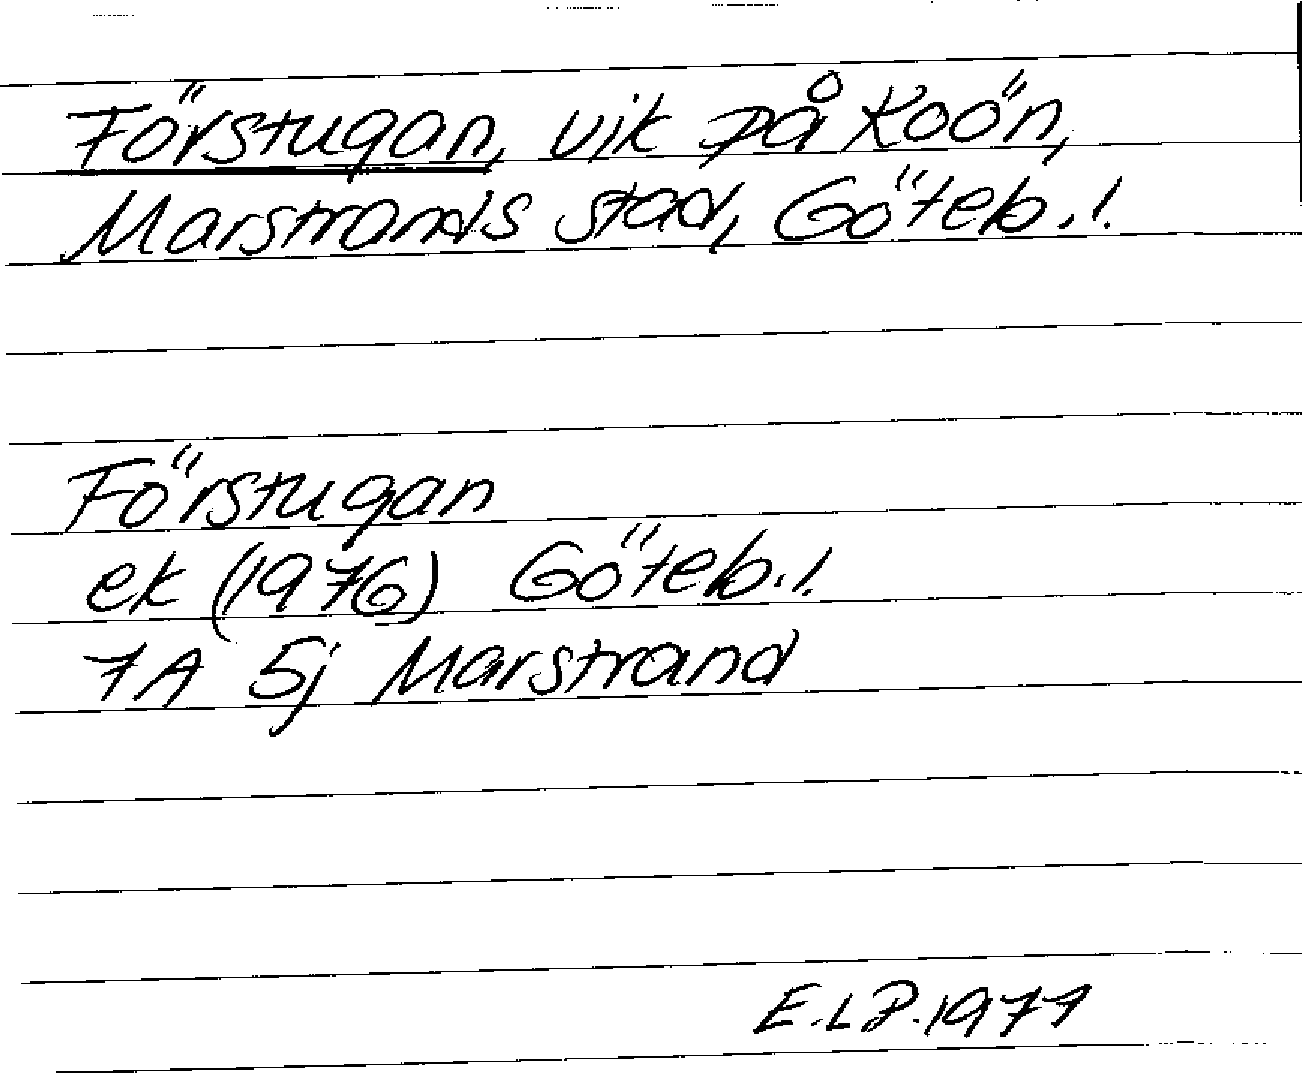 Förstugan, vik på Koön,
Marstrands stad, Göteb. l.
Förstugan
ek (1976) Göteb. l.
7A 5j Marstrand
E.L P. 1977